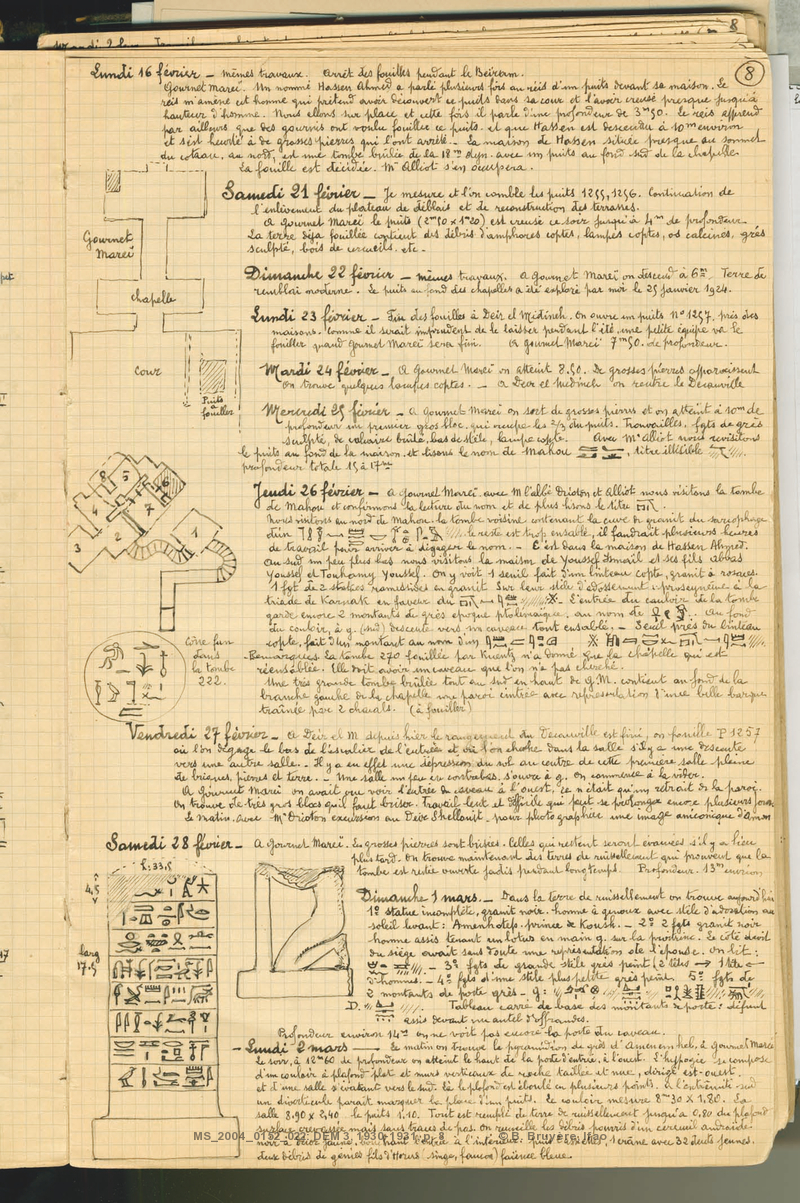 8
8
Lundi 16 février — mêmes travaux. Arrêt des fouilles pendant le Beïram.
Gournet Mareï. Un nommé Hassen Ahmed a parlé plusieurs fois au réis d'un puits devant sa maison. Le
réis m'amène cet homme qui prétend avoir découvert ce puits dans sa cour et l'avoir creusé presque jusqu'à
hauteur d'homme. Nous allons sur place et cette fois il parle d'une profondeur de 3m50. Le réis apprend
par ailleurs que des gournis ont voulu fouiller ce puits et que Hassen est descendu à 10m environ
et s'est heurté à de grosses pierres qui l'ont arrêté. La maison de Hassen située presque au sommet
du coteau, au nord, est une tombe brûlée de la 18me dyn. avec un puits au fond sud de la chapelle.
La fouille est décidée. Mr Alliot s'en occupera.
Samedi 21 février — Je mesure et l'on comble les puits 1255, 1256. Continuation de
l'enlèvement du plateau de déblais et de reconstruction des terrasses.
A Gournet Mareï le puits (2m50 x 1m20) est creusé ce soir jusqu'à 4m de profondeur.
La terre déjà fouillée contient des débris d'amphores coptes, lampes coptes, os calcinés, grès
sculpté, bois de cercueils. etc.
Gournet
Mareï
chapelle
Cour
Puits
à
fouiller
Dimanche 22 février — mêmes travaux. A Gournet Mareï on descend à 6m. Terre de
remblai moderne. Le puits au fond des chapelles a été exploré par moi le 25 janvier 1924.
Lundi 23 février — Fin des fouilles à Deir el Médineh. On ouvre un puits n° 1257, près des
maisons. Comme il serait imprudent de le laisser pendant l'été, une petite équipe va le
fouiller quand Gournet Mareï sera fini. A Gournet Mareï 7m50 de profondeur.
Mardi 24 février — A Gournet Mareï on atteint 8.50. De grosses pierres apparaissent
On trouve quelques tessons coptes. — A Deir el Medineh on rentre le Decauville
Mercredi 25 février — A Gournet Mareï on sort de grosses pierres et on atteint à 10m de
profondeur un premier gros bloc qui occupe les 2/3 du puits. Trouvailles. fgts de grès
sculpté, de calcaire brûlé, bas de stèle, lampe copte. Avec Mr Alliot nous revisitons
le puits au fond de la maison et lisons le nom de Mahou, titre illisible
profondeur totale 15 à 17m
Jeudi 26 février — A Gournet Mareï avec M l'abbé Drioton et Alliot nous visitons la tombe
de Mahou et confirmons la lecture du nom et de plus lisons le titre
Nous visitons au nord de Mahou la tombe voisine contenant la cuve de granit du sarcophage
d'un le reste est trop ensablé, il faudrait plusieurs heures
de travail pour arriver à dégager le nom. — C'est dans la maison de Hassen Ahmed.
Au sud un peu plus bas nous visitons la maison de Youssef Ismaïl et ses fils Abbas
Youssef et Touhamy Youssef. On y voit 1 seuil fait d'un linteau copte, granit à rosaces
1 fgt de 2 statues ramessides en granit. Sur leur stèle d'adossement proscynème à la
triade de Karnak en faveur du L'entrée du couloir de la tombe
garde encore 2 montants de grès époque ptolémaïque, au nom de Au fond
du couloir, à g. (sud) descente vers un caveau tout ensablé. — Seuil près du linteau
copte, fait d'un montant au nom d'un
Remarques. La tombe 270 fouillée par Kuentz n'a donné que la chapelle qui est
réensablée. Elle doit avoir un caveau que l'on n'a pas cherché.
Une très grande tombe brûlée tout au sud en haut de G.M. contient au fond de la
branche gauche de la chapelle une paroi cintrée avec représentation d'une belle barque
traînée par 2 chacals. (à fouiller)
1
2
3
4
5
6
7
8
Cône fun
dans
la tombe
222.
Vendredi 27 février — A Deir el M. depuis hier le rangement du Decauville est fini, on fouille P 1257
où l'on dégage le bas de l'escalier de l'entrée et où l'on cherche dans la salle s'il y a une descente
vers une autre salle. — Il y a en effet une dépression du sol au centre de cette première salle pleine
de briques, pierres et terre. — Une salle un peu en contrebas, s'ouvre à g. On commence à la vider.
A Gournet Mareï on avait cru voir l'entrée du caveau à l'ouest, ce n'était qu'un retrait de la paroi.
On trouve de très gros blocs qu'il faut briser. Travail lent et difficile qui peut se prolonger encore plusieurs jours.
Le matin avec Mr Drioton excursion au Deir Shellouit, pour photographier une image aniconique d'Amon
Samedi 28 février — A Gournet Mareï. Les grosses pierres sont brisées. Celles qui restent seront évacuées s'il y a lieu
plus tard. On trouve maintenant des terres de ruissellement qui prouvent que la
tombe est restée ouverte jadis pendant longtemps. Profondeur. 13m environ
h: 33.5
4.5
larg
17.5
Dimanche 1 mars. — Dans la terre de ruissellement on trouve aujourd'hui
1° statue incomplète, granit noir. homme à genoux avec stèle d'adoration au
soleil levant: Amenhotep. prince de Koush. — 2° 2 fgts granit noir
homme assis tenant un lotus en main g. sur la poitrine. Le côté droit
du siège avait sans doute une représentation de l'épouse. On lit:
— 3° fgts de grande stèle grès peint (2 têtes → 1 tête ←
d'hommes. — 4° fgts d'une stèle plus petite grès peint. 5° fgts de
2 montants de porte grès — g:
D. Tableau carré de base des montants de porte: défunt
assis devant un autel d'offrandes.
Profondeur environ 14m on ne voit pas encore la porte du caveau.
— Lundi 2 mars — Le matin on trouve le pyramidion de grès d'Amenemheb. à Gournet Mareï
Le soir, à 12m60 de profondeur on atteint le haut de la porte d'entrée, à l'ouest. L'hypogée se compose
d'un couloir à plafond plat et murs verticaux de roche taillée et nue, dirigé est-ouest,
et d'une salle s'évasant vers le sud. Là le plafond est éboulé en plusieurs points. A l'extrémité sud
un diverticule paraît marquer la place d'un puits. Le couloir mesure 8m30 x 1,80. La
salle 8.90 x 2,40 le puits 1.10. Tout est rempli de terre de ruissellement jusqu'à 0,80 du plafond
surface crevassée mais sans traces de pas. On recueille les débris pourris d'un cercueil androïde
noir à décor jaune, 1 crâne avec 32 dents jeunes.
deux débris de génies fils d'Horus (singe, faucon) faïence bleue.
MS_2004_0152_022; DEM 3, 1930-1931, p. 8 © B. Bruyère, Ifao